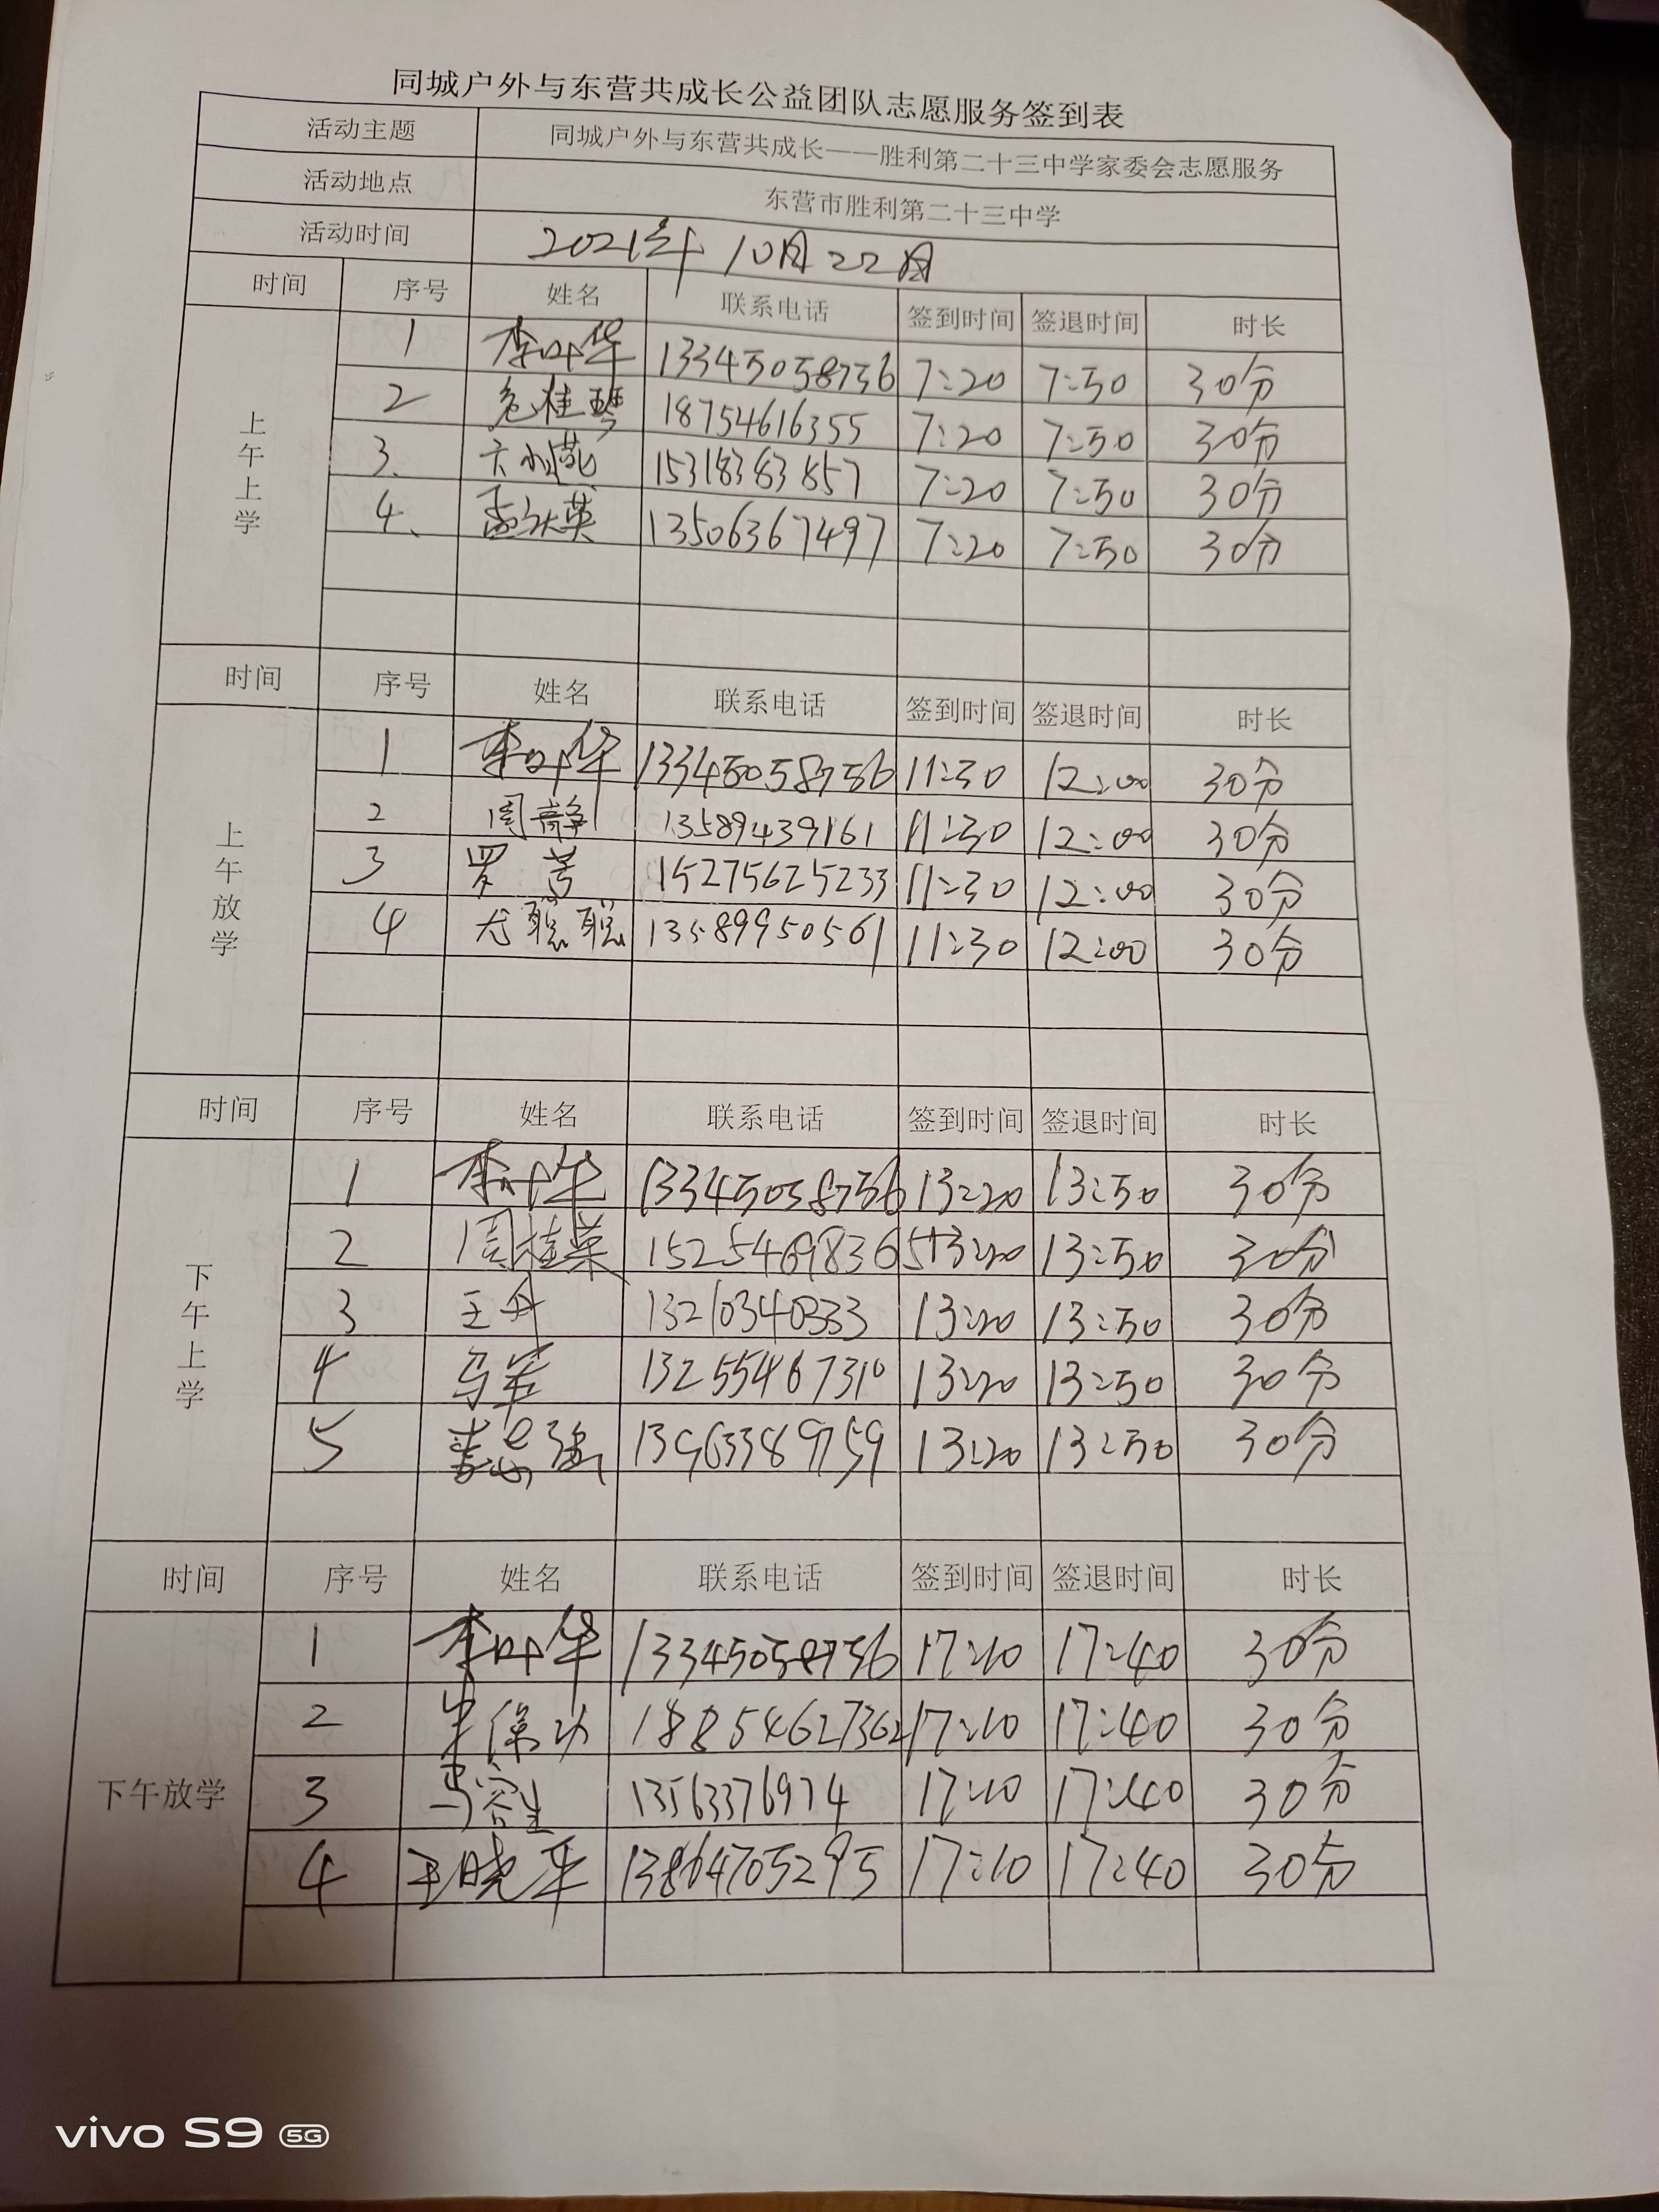 同城户外与东营共成长公益团队志愿服务签到表
活动主题 同城户外与东营共成长——胜利第二十三中学家委会志愿服务
活动地点 东营市胜利第二十三中学
活动时间 2021年10月22日
时间 序号 姓名 联系电话 签到时间 签退时间 时长
上午上学
1 李叶华 13345058756 7:20 7:50 30分
2 危桂琴 18754616355 7:20 7:50 30分
3、 15318383857 7:20 7:50 30分
4、 孟秋英 13506367497 7:20 7:50 30分
时间 序号 姓名 联系电话 签到时间 签退时间 时长
上午放学
1 李叶华 13345058756 11:30 12:00 30分
2 周静 13589439161 11:30 12:00 30分
3 罗芳 15275625233 11:30 12:00 30分
4 尤聪聪 13589950561 11:30 12:00 30分
时间 序号 姓名 联系电话 签到时间 签退时间 时长
下午上学
1 李叶华 13345058756 13:20 13:50 30分
2 周桂荣 15254698365 13:20 13:50 30分
3 王丹 13210340333 13:20 13:50 30分
4 13255467310 13:20 13:50 30分
5 13963389759 13:20 13:50 30分
时间 序号 姓名 联系电话 签到时间 签退时间 时长
下午放学
1 李叶华 13345058756 17:10 17:40 30分
2 牛保功 18854627362 17:10 17:40 30分
3 13563376974 17:10 17:40 30分
4 王晓平 13864705295 17:10 17:40 30分
vivo S9 5G